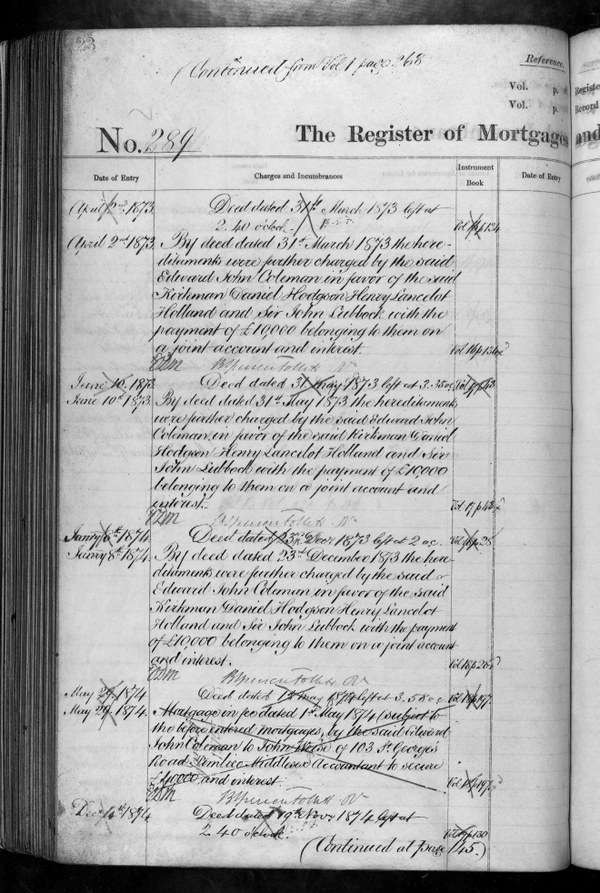 (Continued from Vol 1 page 268
Reference.
Vol. p.
Vol. p.
No. 289 The Register of Mortgages and
Register
Record
Date of Entry Charges and Incumbrances Instrument Book Date of Entry
April 2nd 1873 Deed dated 31st March 1873 left at
2.40 o'clock. Vol 16 p 134
April 2nd 1873. By deed dated 31st March 1873 the here-
ditaments were further charged by the said
Edward John Coleman in favor of the said
Kirkman Daniel Hodgson Henry Lancelot
Holland and Sir John Lubbock with the
payment of £10,000 belonging to them on
a joint account and interest. Vol 16 p 134
BSpencer Follett Rr
June 10. 1873 Deed dated 31 May 1873 left at 3.35 oc. Vol 17 p 43
June 10th 1873. By deed dated 31st May 1873 the hereditaments
were further charged by the said Edward John
Coleman in favor of the said Kirkman Daniel
Hodgson Henry Lancelot Holland and Sir
John Lubbock with the payment of £10,000
belonging to them on a joint account and
interest. Vol 17 p 43
BSpencer Follett Rr
Janry 8th 1874. Deed dated 23rd Decr 1873 left at 2 oc. Vol 18 p 28
Janry 8th 1874. By deed dated 23rd December 1873 the here-
ditaments were further charged by the said
Edward John Coleman in favor of the said
Kirkman Daniel Hodgson Henry Lancelot
Holland and Sir John Lubbock with the payment
of £10,000 belonging to them on a joint account
and interest. Vol 18 p 28
BSpencer Follett Rr
May 29. 1874 Deed dated 1st May 1874 left at 3.5 oc. Vol 18 p 197
May 29. 1874. Mortgage in fee dated 1st May 1874 (subject to
the before entered mortgages) by the said Edward
John Coleman to John of 103 St George's
Road Pimlico Middlesex Accountant to secure
£4000 and interest. Vol 18 p 197
BSpencer Follett Rr
Decr 14th 1874 Deed dated 19th Novr 1874 left at
2.40 o'clock. Vol 19 p 130
(Continued at page 145.)